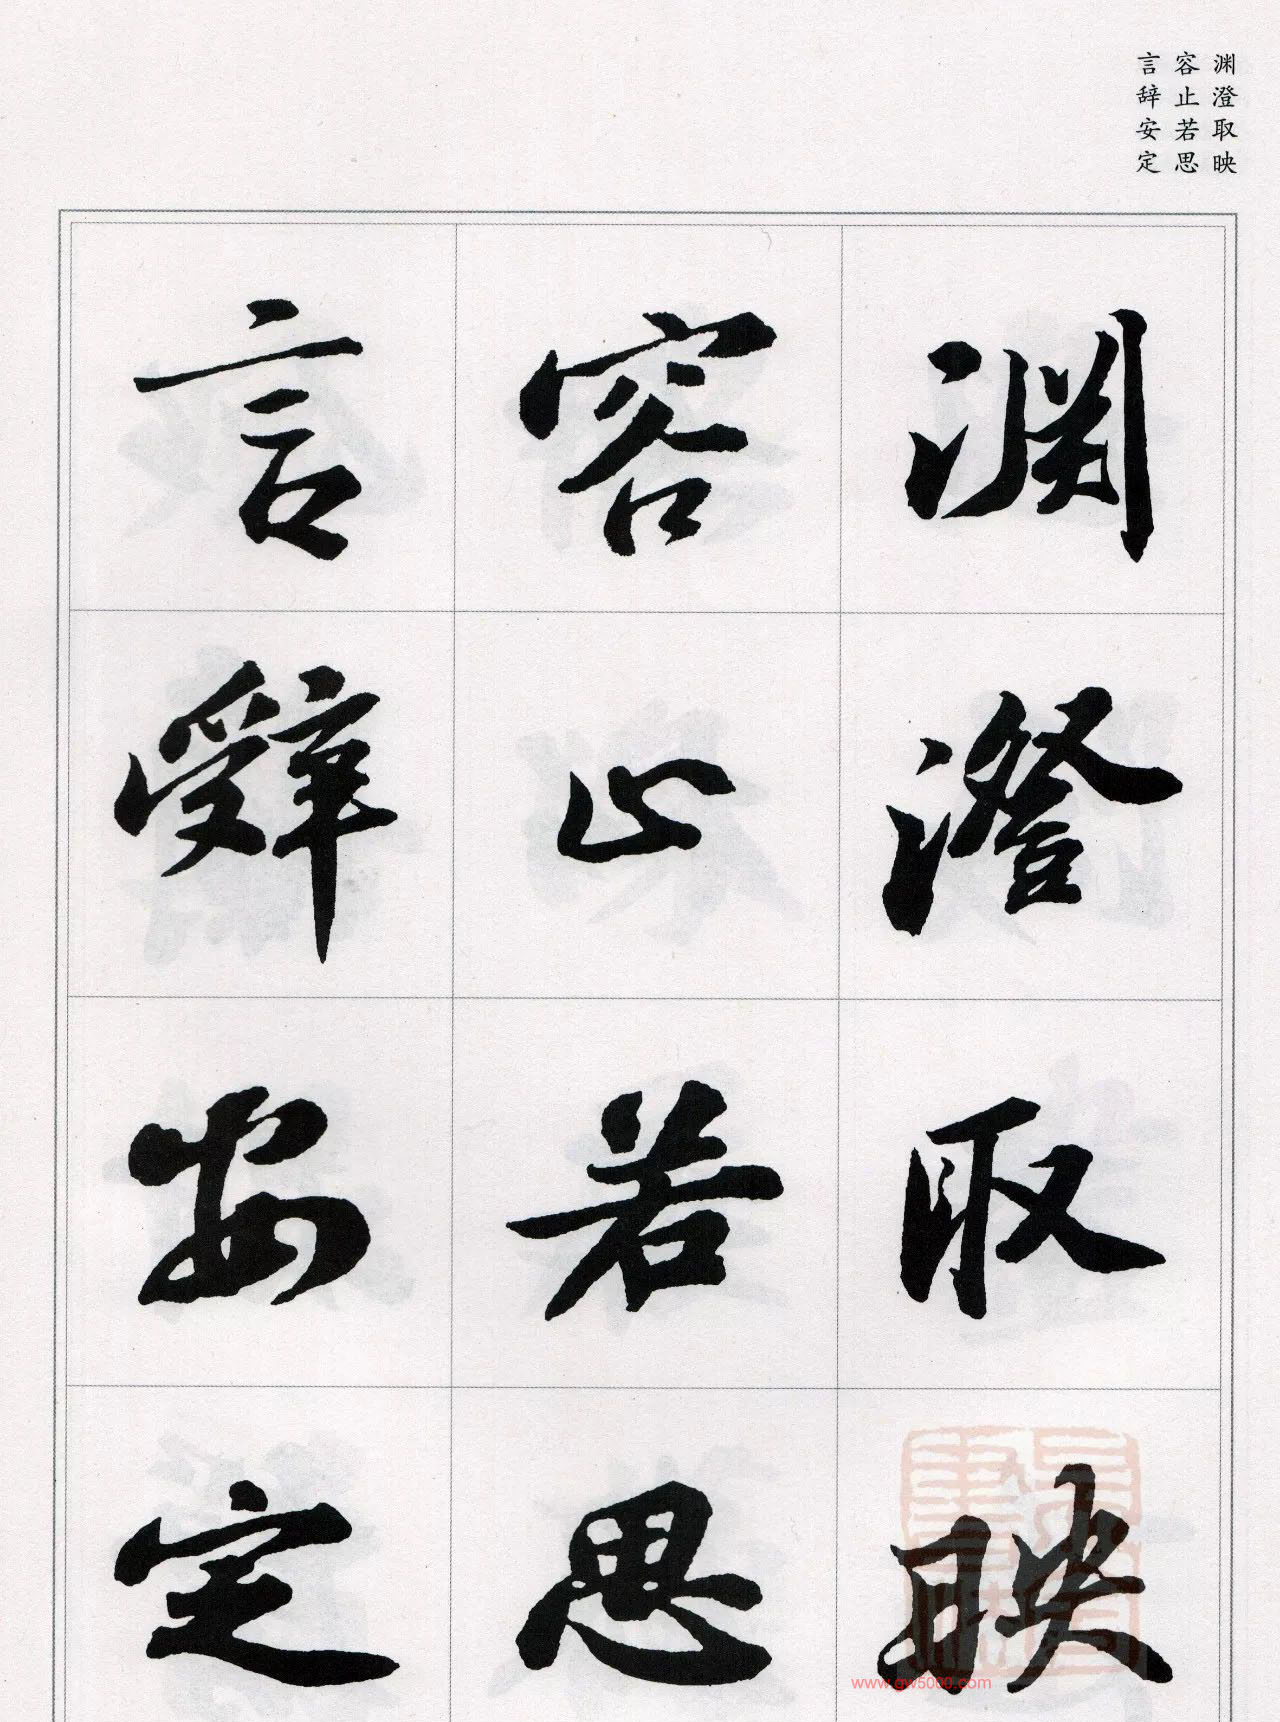 渊澄取映
容止若思
言辞安定
渊澄取映
容止若思
言辞安定
www.gw5000.com